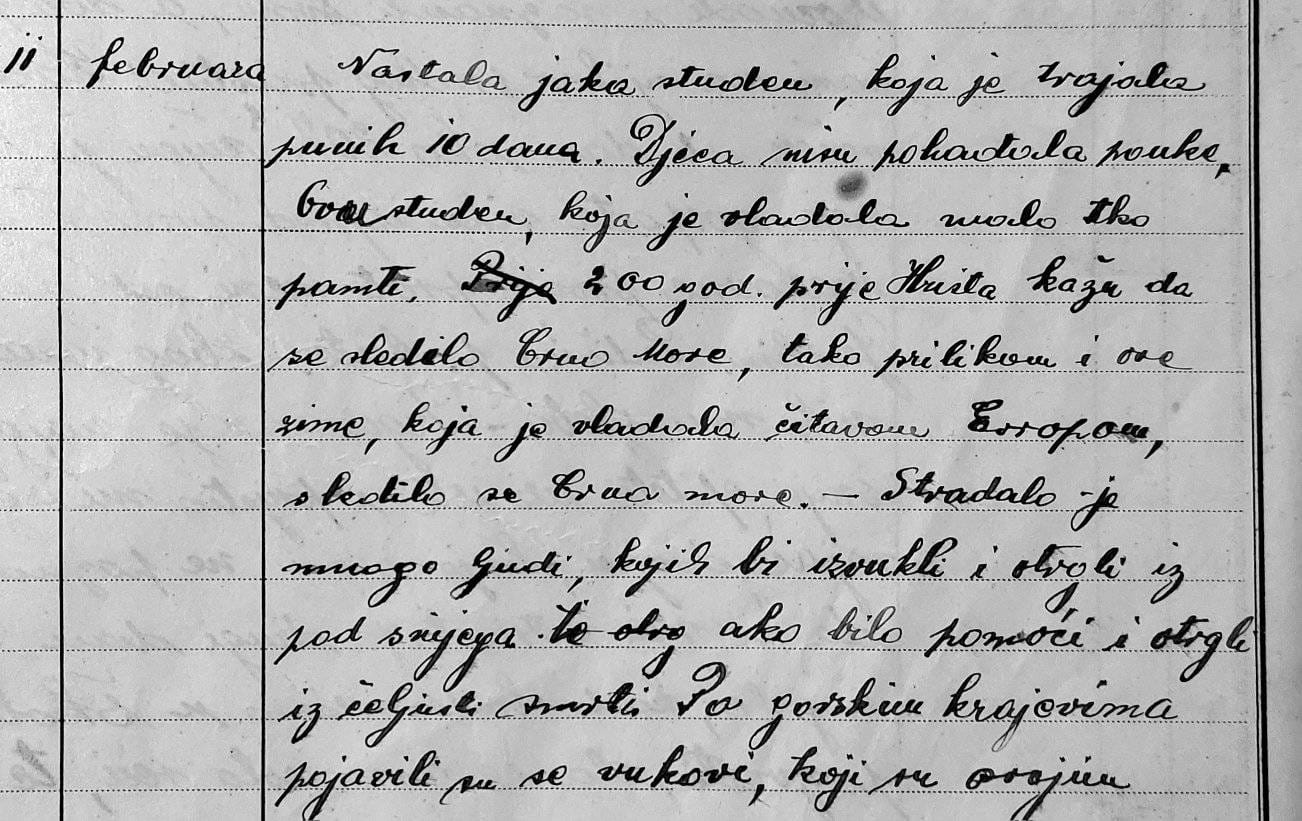 11 februara Nastala jaka studen, koja je trajala
punih 10 dana. Djeca nisu pohađala pouke,
Ovu studen, koja je vladala malo tko
pamti. Prije 200 god. prije Hrista kažu da
se sledilo Crno More, tako prilikom i ove
zime, koja je vladala čitavom Evropom,
sledilo se Crno more. — Stradalo je
mnogo ljudi, kojih bi izvukli i otrgli iz
pod snijega to otrg ako bilo pomoći i otrgli
iz čeljusti smrti Po gorskim krajevima
pojavili su se vukovi, koji su svojim